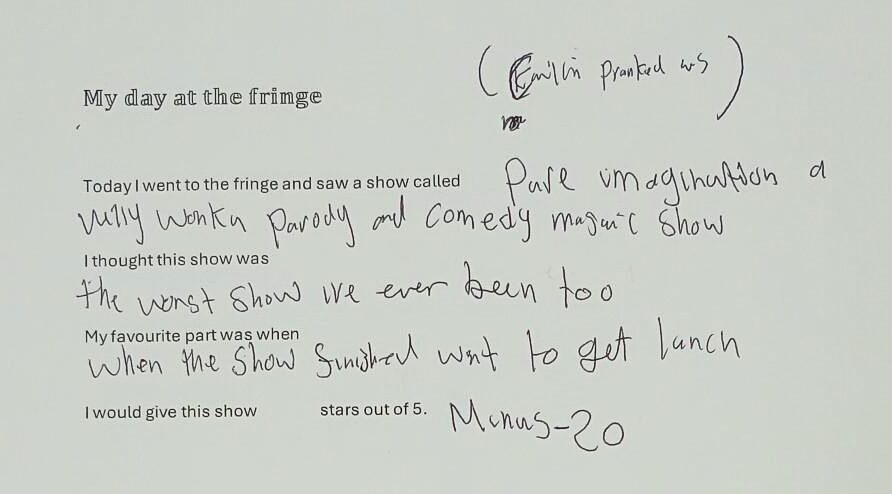 (Emilin pranked us)
My day at the fringe
Today I went to the fringe and saw a show called Pure imagination a
Willy Wonka parody and comedy magic show
I thought this show was
the worst show ive ever been too
My favourite part was when
when the show finished went to get lunch
I would give this show stars out of 5. Minus-20